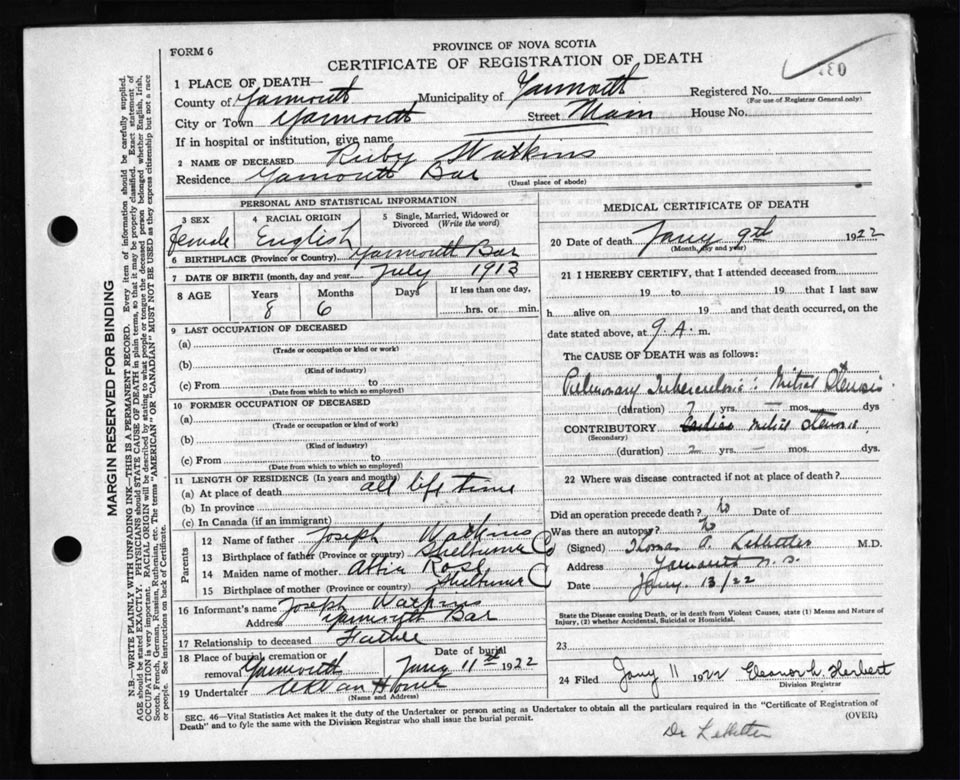 FORM 6
PROVINCE OF NOVA SCOTIA
CERTIFICATE OF REGISTRATION OF DEATH
1 PLACE OF DEATH—
County of Yarmouth Municipality of Yarmouth Registered No.
(For use of Registrar General only)
City or Town Yarmouth Street Main House No.
If in hospital or institution, give name
2 NAME OF DECEASED Ruby Watkins
Residence Yarmouth Bar
(Usual place of abode)
PERSONAL AND STATISTICAL INFORMATION
3 SEX Female
4 RACIAL ORIGIN English
5 Single, Married, Widowed or Divorced (Write the word)
6 BIRTHPLACE (Province or Country) Yarmouth Bar
7 DATE OF BIRTH (month, day and year) July 1913
8 AGE Years 8 Months 6 Days If less than one day, hrs. or min.
9 LAST OCCUPATION OF DECEASED
(a)
(Trade or occupation or kind or work)
(b)
(Kind of industry)
(c) From to
(Date from which to which employed)
10 FORMER OCCUPATION OF DECEASED
(a)
(Trade or occupation or kind of work)
(b)
(Kind of industry)
(c) From to
(Date from which to which so employed)
11 LENGTH OF RESIDENCE (In years and months)
(a) At place of death all life time
(b) In province
(c) In Canada (if an immigrant)
Parents
12 Name of father Joseph Watkins
13 Birthplace of father (Province or country) Shelburne Co
14 Maiden name of mother Rose
15 Birthplace of mother (Province or country) Shelburne C
16 Informant's name Joseph Watkins
Address Yarmouth Bar
17 Relationship to deceased Father
18 Place of burial, cremation or removal Yarmouth Date of burial Jany 11th 1922
19 Undertaker
(Name and Address)
MEDICAL CERTIFICATE OF DEATH
20 Date of death Jany 9th 1922
(Month, day and year)
21 I HEREBY CERTIFY, that I attended deceased from
19 to 19 that I last saw
h alive on 19 and that death occurred, on
date stated above, at 9 A. m.
The CAUSE OF DEATH was as follows:
Pulmonary Tuberculosis : Mitral Stenosis
(duration) yrs. — mos. dys
CONTRIBUTORY Mitral Stenosis
(Secondary)
(duration) 2 yrs. — mos. dys.
22 Where was disease contracted if not at place of death?
Did an operation precede death? No Date of
Was there an autopsy? No
(Signed) Thomas A. M.D.
Address Yarmouth N.S.
Date Jany. 13/22
State the Disease causing Death, or in death from Violent Causes, state (1) Means and Nature of
Injury, (2) whether Accidental, Suicidal or Homicidal.
23
24 Filed Jany 11 1922 Herbert
Division Registrar
SEC. 46—Vital Statistics Act makes it the duty of the Undertaker or person acting as Undertaker to obtain all the particulars required in the "Certificate of Registration of
Death" and to fyle the same with the Division Registrar who shall issue the burial permit.
(OVER)
Dr
MARGIN RESERVED FOR BINDING
N.B.—WRITE PLAINLY WITH UNFADING INK—THIS IS A PERMANENT RECORD. Every item of information should be carefully supplied.
AGE should be stated EXACTLY. PHYSICIANS should STATE CAUSE OF DEATH in plain terms, so that it may be properly classified. Exact statement of
OCCUPATION is very important. RACIAL ORIGIN will be described by stating to what people or tongue the deceased person belonged whether English, Irish,
Scotch, French, German, Russian, Ruthenian, etc. The terms "AMERICAN" OR "CANADIAN" MUST NOT BE USED as they express citizenship but not a race
or people. See instructions on back of Certificate.